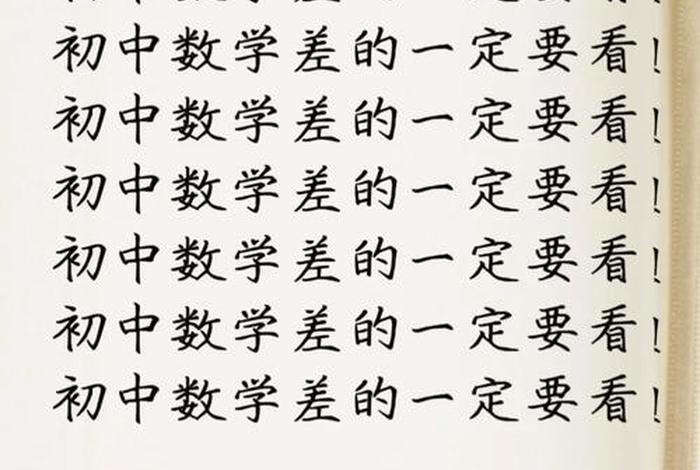 初中数学差的一定要看!
初中数学差的一定要看!
初中数学差的一定要看!
初中数学差的一定要看!
初中数学差的一定要看!
初中数学差的一定要看!